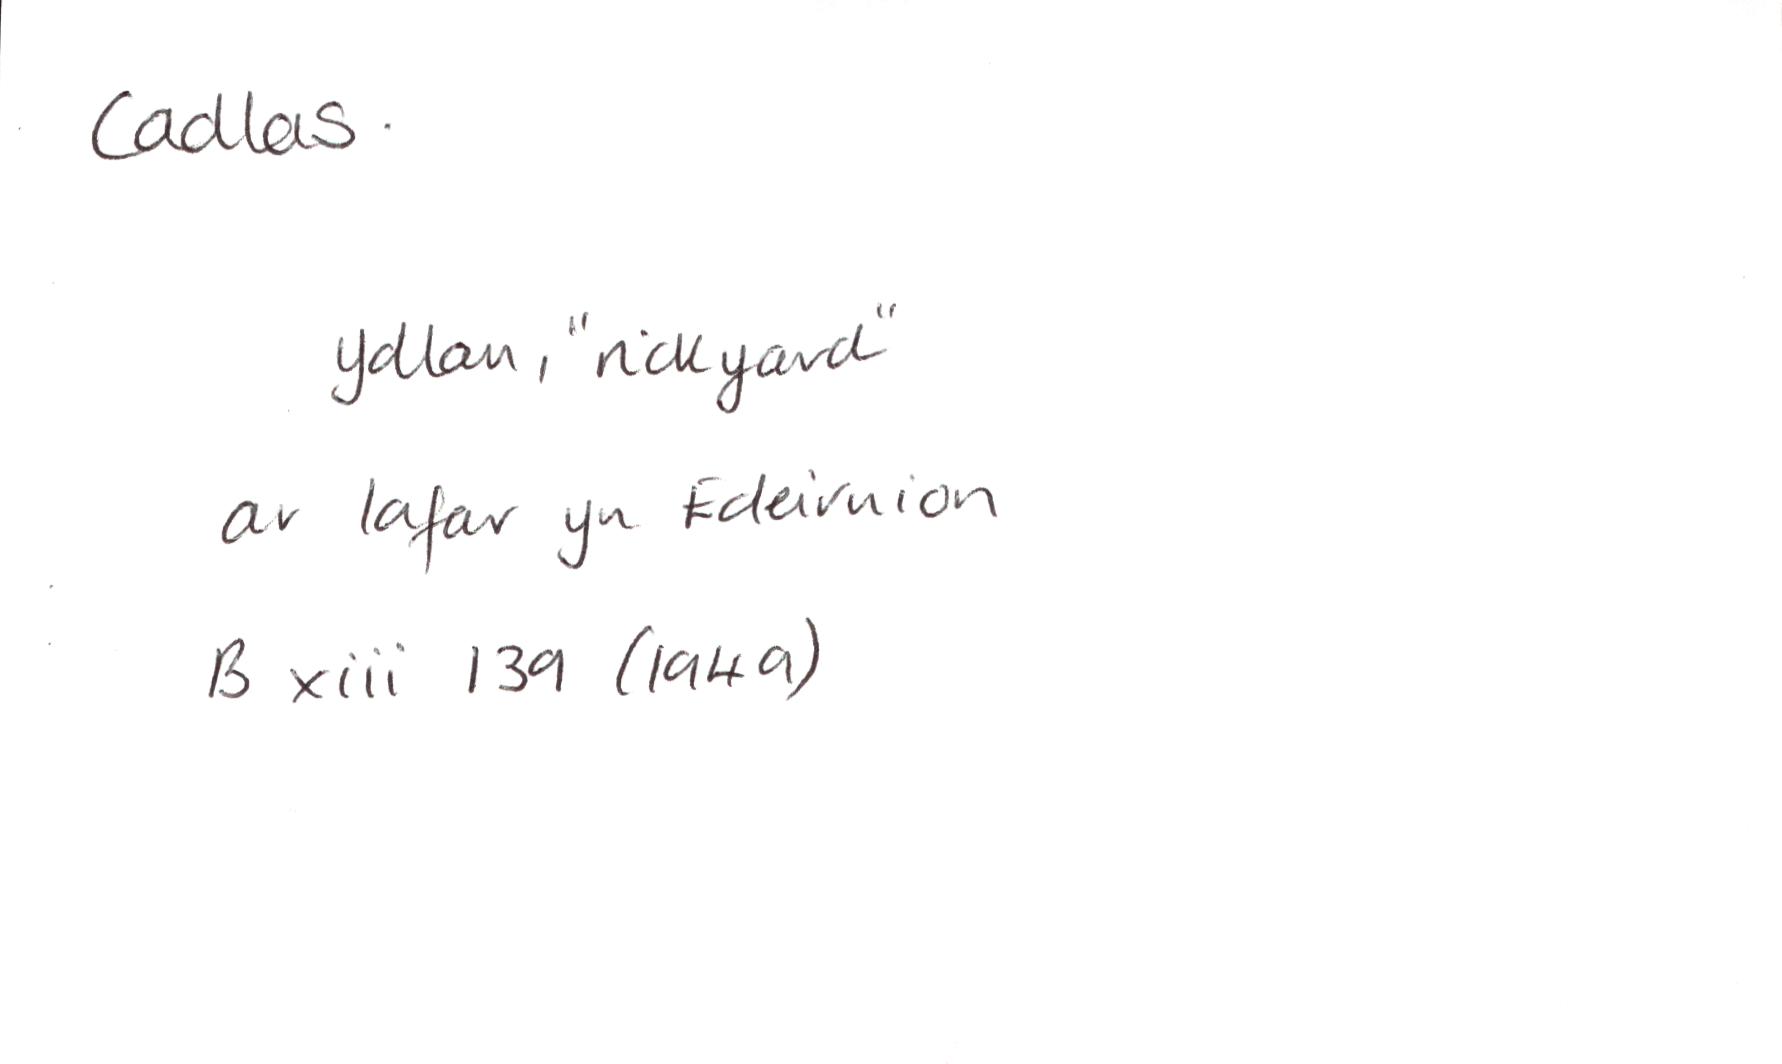 Cadlas.
ydlan, "rickyard"
ar lafar yn Edeirnion
B xiii 139 (1949)